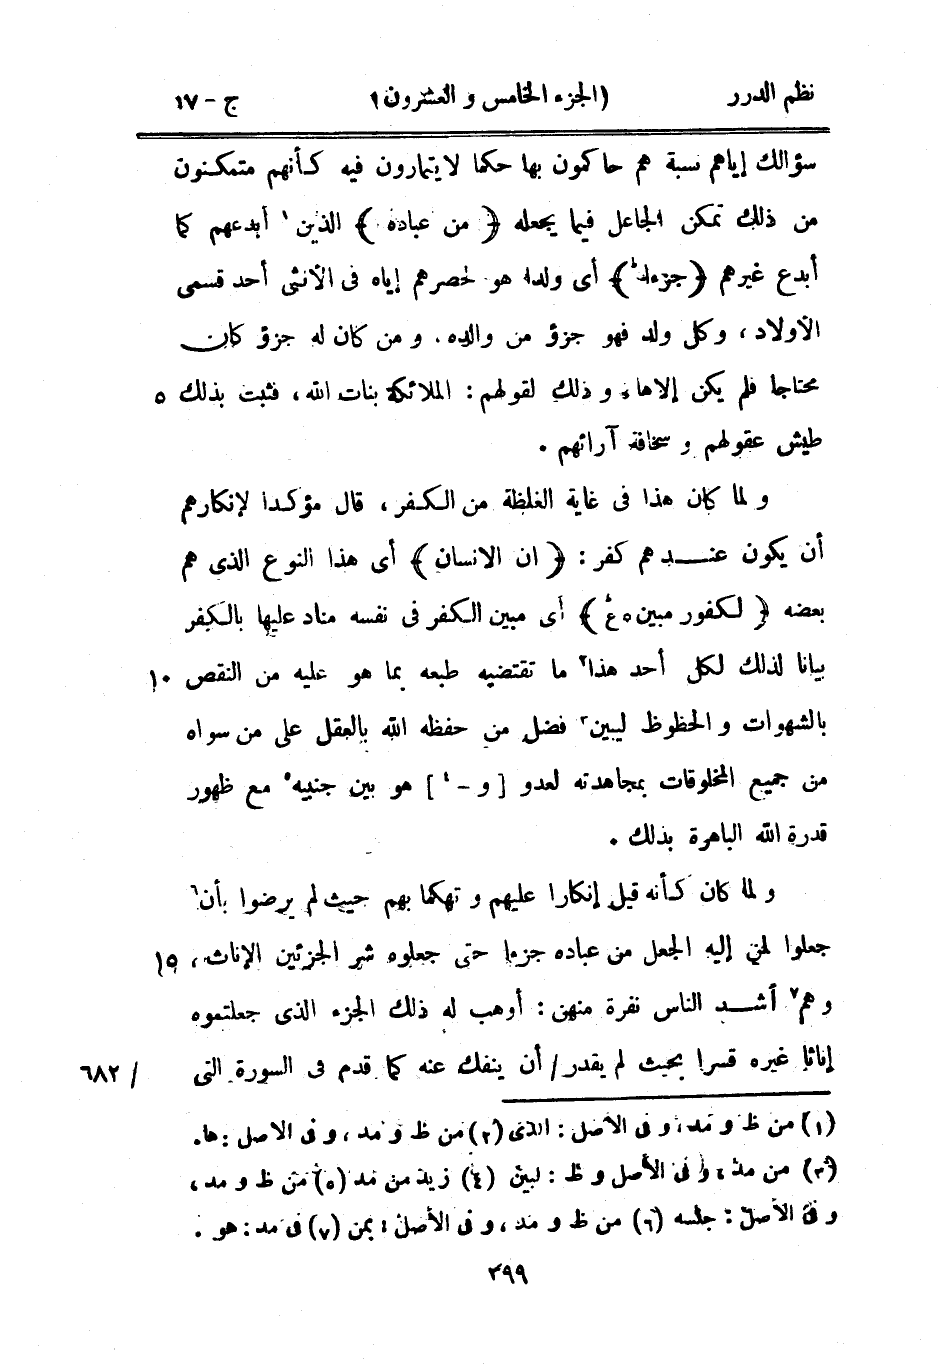 نظم الدرر (الجزء الخامس و العشرون) ج - ١٧
سؤالك إياهم نسبة هم حاكمون بها حكما لا يتمارون فيه كأنهم متمكنون
من ذلك تمكن الجاعل فيما يجعله ﴿ من عباده ﴾ الذين ١ أبدعهم كما
أبدع غيرهم ﴿ جزءا ۭ ﴾ أى ولدا هو لحصرهم إياه فى الأنثى أحد قسمى
الأولاد ، وكل ولد فهو جزؤ من والده . و من كان له جزؤ كان
محتاجا فلم يكن إلاها، و ذلك لقولهم : الملائكة بنات الله ، فثبت بذلك ٥
طيش عقولهم و سخافة آرائهم .
و لما كان هذا فى غاية الغلظة من الكفر ، قال مؤكدا لإنكارهم
أن يكون عندهم كفر : ﴿ ان الانسان ﴾ أى هذا النوع الذى هم
بعضه ﴿ لكفور مبين ه ع ﴾ أى مبين الكفر فى نفسه مناد عليها بالكفر
بيانا لذلك لكل أحد هذا ٢ ما تقتضيه طبعه بما هو عليه من النقص ١٠
بالشهوات و الحظوظ ليبين ٣ فضل من حفظه الله بالعقل على من سواه
من جميع المخلوقات بمجاهدته لعدو [ و - ٤ ] هو بين جنبيه ٥ مع ظهور
قدرة الله الباهرة بذلك .
و لما كان كأنه قيل إنكارا عليهم و تهكما بهم حيث لم يرضوا بأن ٦
جعلوا لمن إليه الجعل من عباده جزءا حتى جعلوه شر الجزئين الإناث ، ١٥
و هم ٧ أشد الناس نفرة منهن : أوهب له ذلك الجزء الذى جعلتموه
إناثا غيره قسرا بحيث لم يقدر / أن ينفك عنه كما قدم فى السورة التى / ٦٨٢
(١) من ظ و مد ، و فى الأصل : الذى (٢) من ظ و مد ، و فى الاصل : ها .
(٣) من مد ، و فى الأصل و ظ : لبين (٤) زيد من مد (٥) من ظ و مد ،
و فى الأصل : جلسه (٦) من ظ و مد ، و فى الأصل : بمن (٧) فى مد : هو .
٣٩٩